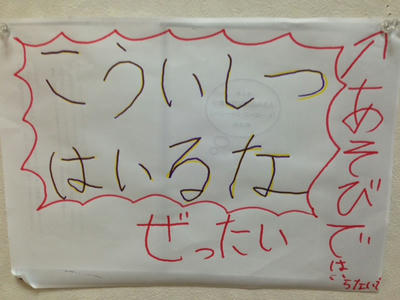 こういしつ
はいるな
ぜったい
あそびでは
いらないで